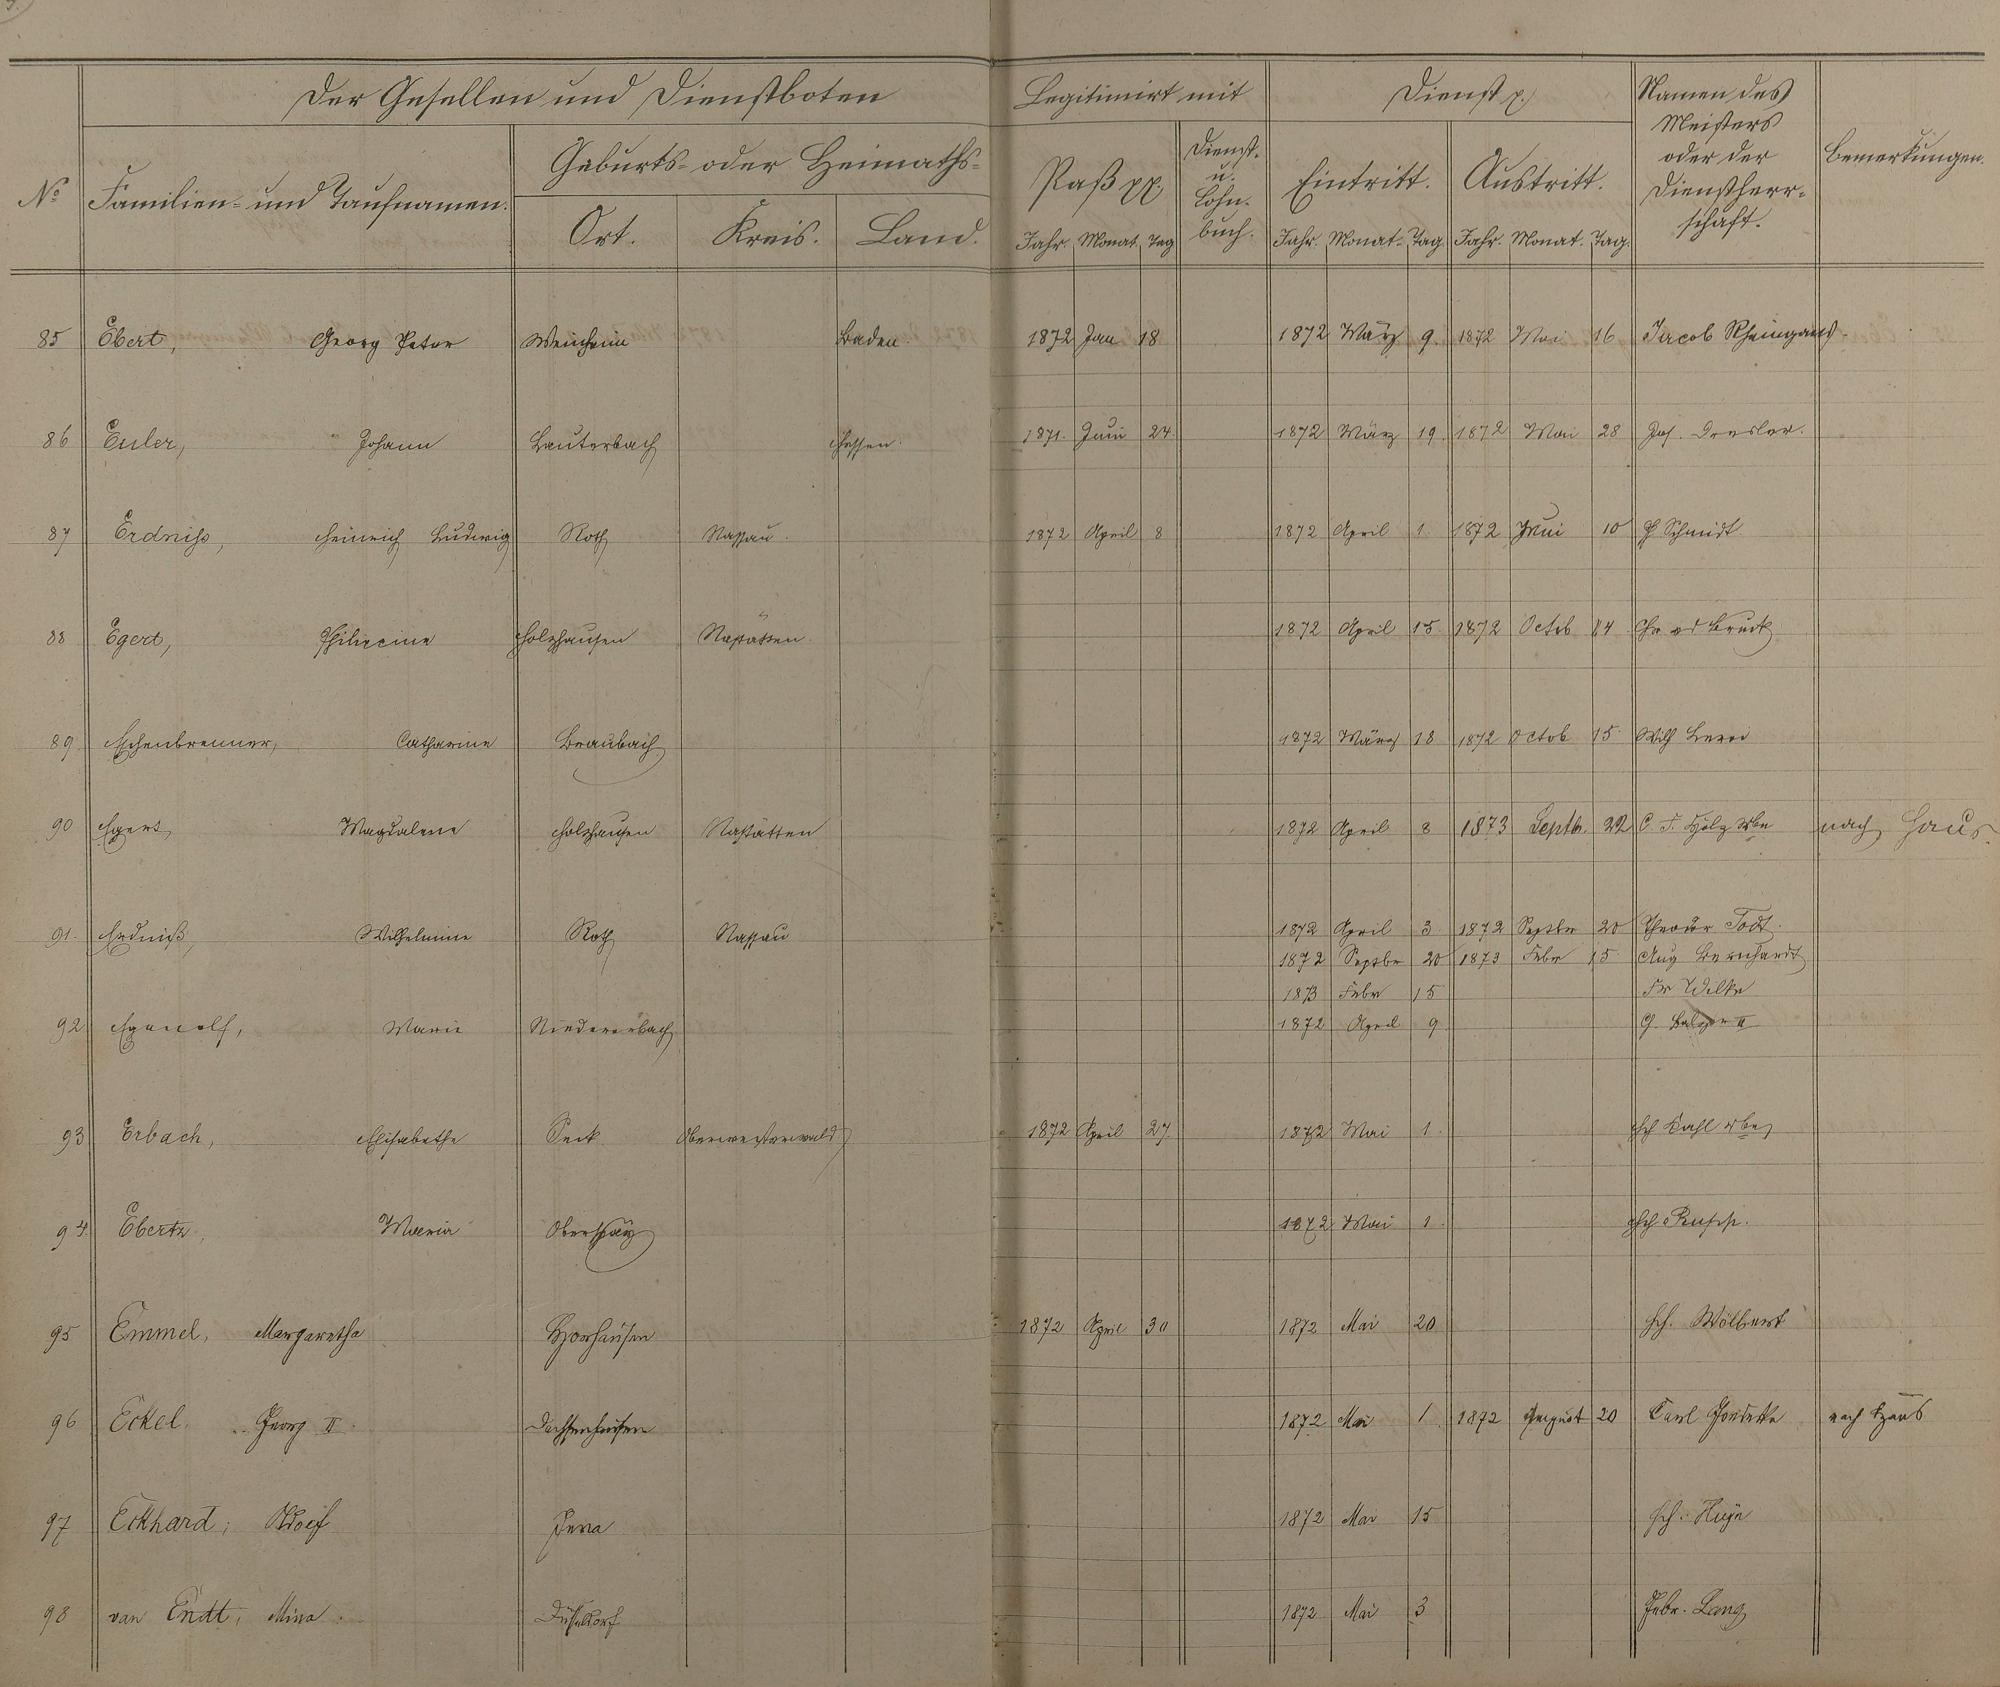 Der Gesellen und Dienstboten Legitimirt mit Dienst p. Namen des Meisters oder der Dienstherr- schaft. Bemerkungen.
No Familien- und Taufnamen. Geburts- oder Heimaths- Paß pp. Dienst- u. Lohn- buch. Eintritt. Austritt.
Ort. Kreis. Land. Jahr. Monat. Tag Jahr. Monat. Tag. Jahr. Monat. Tag.
85 Ebert, Georg Peter Weinheim Baden. 1872 Jan 18 1872 März 9. 1872 Mai 16 Jacob Rheingans
86 Euler, Johann Lauterbach Hessen. 1871. Juni 24. 1872 März 19. 1872 Mai 28 Jos. Dresler.
87 Erdniß, Heinrich Ludwig Roth Nassau. 1872 April 8 1872 April 1. 1872 Juni 10 Schmidt
88 Egert, Philippine Holzhausen Nastätten. 1872 April 15. 1872 Octob 14 Chr
89. Eschenbrenner, Catharine Braubach 1872 März 18 1872 Octob 15. Wilh
90 Egert, Magdalene Holzhausen Nastätten 1872 April 8 1873 Septb. 22 C. F. nach Haus.
91. Erdniß, Wilhelmine Roth Nassau 1872 April 3 1872 Septbr 20 Theodor Todt.
1872 Septbr 20 1873 Febr 15. Aug Bernhardt
1873 Febr 15 Fr Wilke
92 Egenolf, Marie Niedererbach 1872 April 9. Balzer II
93 Erbach, Elisabethe Seck Oberwesterwald 1872 April 27. 1872 Mai 1. Hch Kahl Wbe
94. Ebertz, Maria Oberspay 1872 Mai 1. Hch
95 Emmel, Margaretha Horhausen 1872 April 30 1872 Mai 20 Hch. Wölbert
96 Eckel, Georg II. Dachsenhausen 1872 Mai 1. 1872 August 20 Carl nach Haus
97 Eckhard, Adolf Jena 1872 Mai 15 Hch.
98 van Endt, Mina. Düsseldorf 1872 Mai 3 Gebr. Lang